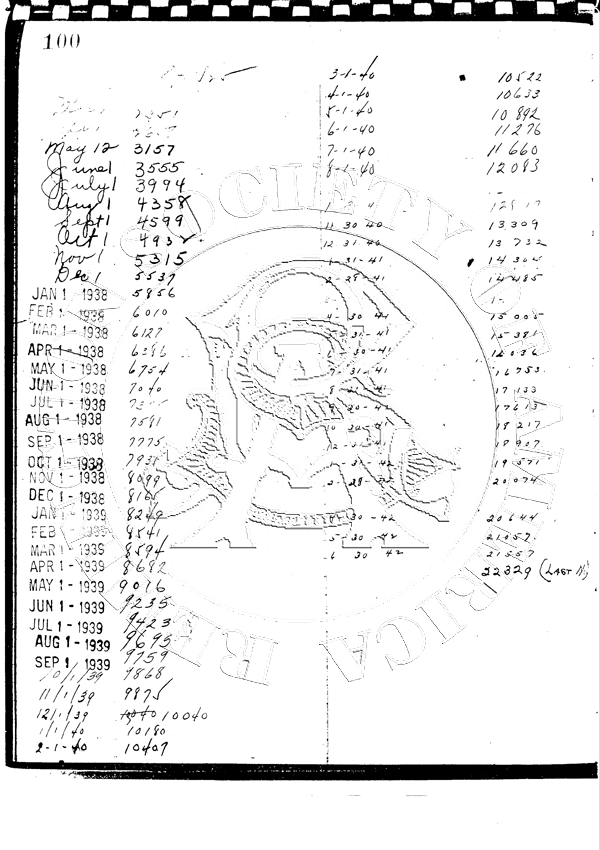 100
May 12 3157
June 1 3555
July 1 3994
Aug 1 4358
Sept 1 4599
Oct 1 493
Nov 1 5315
Dec 1 5537
JAN 1 - 1938 5856
FEB 1 - 1938 6010
MAR 1 - 1938 6127
APR 1 - 1938 6386
MAY 1 - 1938 6754
JUN 1 - 1938 7040
JUL 1 - 1938
AUG 1 - 1938 7591
SEP 1 - 1938 7775
OCT 1 - 1938
NOV 1 - 1938 8099
DEC 1 - 1938
JAN 1 - 1939 8249
FEB 1 - 1939 8541
MAR 1 - 1939 8594
APR 1 - 1939 8682
MAY 1 - 1939 9016
JUN 1 - 1939 9235
JUL 1 - 1939 9423
AUG 1 - 1939 9695
SEP 1 - 1939 9759
10/1/39 9868
11/1/39 9875
12/1/39 10040
1/1/40 10180
2-1-40 10407
3-1-40 10522
4-1-40 10633
5-1-40 10892
6-1-40 11276
7-1-40 11660
8-1-40 12083
11 30 40 13309
12 31 40 13732
1-31-41 14304
2-28-41 14485
4-30 41 15005
5-31-41 15381
6-30-41
7-31-41 16753
17133
17613
18217
18907
19571
20074
4-30-42 20644
5-30-42 21057
6 30 42 21557
22329 (LAST No)
SOCIETY OF AMERICA